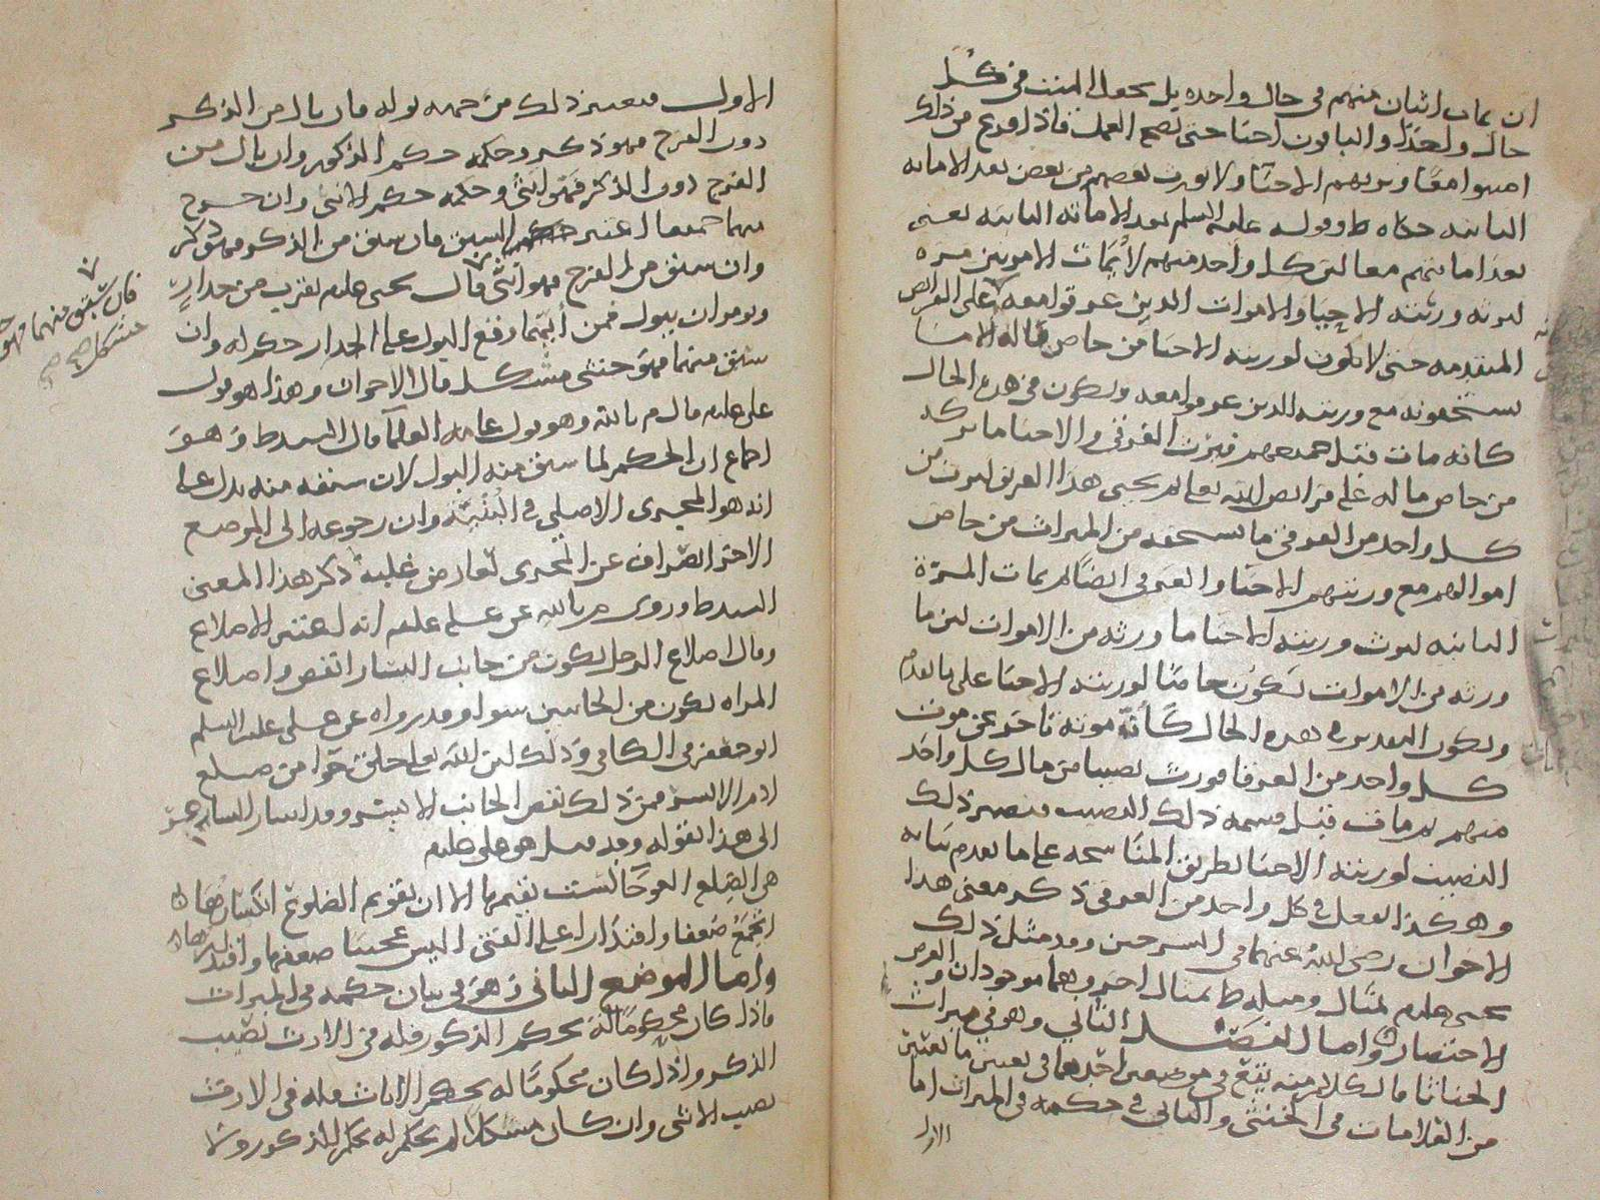 ان يمات اثنان منهم في حال واحده بل يجعل الميت في كل
حال واحدا والباقون احيا حتى تصح العمل فاذا فرع من ذلك
اميتوا معا وورثهم الاحيا ولا يورث بعضهم من بعض بعد الاماته
الثانيه وقوله عليه السلم بعد الاماته الثانيه يعني
بعد اماتتهم معا لان كل واحد منهم لا يمات الا مرتين مره
لترثه ورثته الاحيا والاموات الذين غرقوا معه على الفرائض
المتقدمه حتى لا تكون لورثته الاحيا من خاص ماله الا ما
يستحقونه مع ورثته الذين غرقوا معه ويكون في هذه الحال
كانه مات قبل جميعهم فيرث الغرقى والاحيا ما تركه
من خاص ماله على فرائض الله تعلى ثم يحيى هذا الغريق ليرث من
كل واحد من الغرقى ما يستحقه من الميراث من خاص
اموالهم مع ورثتهم الاحيا والغرقى ايضا ثم يمات المرة
الثانيه ليرث ورثته الاحيا ما ورثه من الاموات لان ما
ورثه من الاموات يكون خاصا لورثته الاحيا على ما تقدم
ويكون التقدير في هذه الحال كأنه موته تاخر عن موت
كل واحد من الغرقا فورث نصيبا من مال كل واحد
منهم ثم مات قبل قسمه ذلك النصيب فيصير ذلك
النصيب لورثته الاحيا بطريق المناسخه على ما تقدم بيانه
وهكذا الفعل في كل واحد من الغرقى ذكر معنى هذا
الاخوان رضي الله عنهما في الشرحين وقد مثل ذلك
يحيى عليلم بمثال ومثله ط بمثال اخر وهما موجودان والغرض
الاختصار واما الفصل الثاني وهو في ميراث
الخناثا فالكلام منه يقع في موضعين احدهما في تعيين ما يتعين
من العلامات في الخنثى والثاني في حكمه في الميراث اما
الاول
الاول فيعتبر ذلك من جهه بوله فان بال من الذكر
دون الفرج فهو ذكر وحكمه حكم الذكور وان بال من
الفرج دون الذكر فهو انثى وحكمه حكم الانثى وان خرج
منهما جميعا اعتبر السبق فان سبق من الذكر فهو ذكر
وان سبق من الفرج فهو انثى قال يحيى عليلم يقرب من جدار
ويومر ان يبول فمن أيهما وقع البول على الجدار حكم له وان
سبق منهما فهو خنثى مشكل قال الاخوان وهذا هو قول
علي عليلم قال م بالله وهو قول عامه العلما قال السيد ط وهو
اجماع ان الحكم لما سبق منه البول لان سبقه منه يدل على
انه هو المجرى الاصلي في البنية وان رجوعه الى الموضع
الاخر انصراف عن المجرى لعارض غلبه ذكر هذا المعنى
السيد ط وروى م بالله عن علي عليلم انه يعتبر الاضلاع
وقال اضلاع الرجل يكون من جانب اليسار انقص واضلاع
المراه يكون من الجانبين سوا وقد رواه عن علي عليه السلم
ابو جعفر في الكافي وذلك لان الله تعلى خلق حوا من ضلع
ادم الايسر فمن ذلك نقص الجانب الايسر وقد اشار الشاعر
الى هذا بقوله وقد قيل هو علي عليلم
هي الضلع العوجا لست تقيمها الا ان تقويم الضلوع انكسارها
اتجمع ضعفا واقتدارا على الفتى اليس عجيبا ضعفها واقتدارها
واما الموضع الثاني وهو في بيان حكمه في الميراث
فاذا كان محكوما له بحكم الذكور فله في الارث نصيب
الذكر واذا كان محكوما له بحكم الاناث فله في الارث
نصيب الانثى وان كان مشكلا لم يحكم له بحكم الذكور ولا
فان سبق منهما فهو
مشكل صح